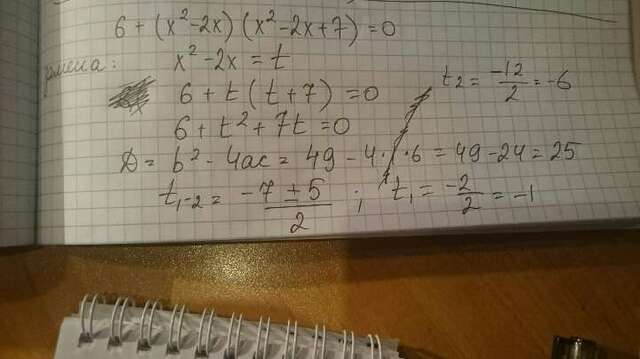 6 + (x² - 2x)(x² - 2x + 7) = 0
замена: x² - 2x = t
6 + t(t + 7) = 0
6 + t² + 7t = 0
D = b² - 4ac = 49 - 4·1·6 = 49 - 24 = 25
t₁₋₂ = (-7 ± 5)/2 ; t₁ = -2/2 = -1
t₂ = -12/2 = -6